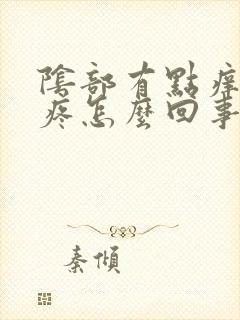 陰部有點痒
疼怎麼回事
秦傾